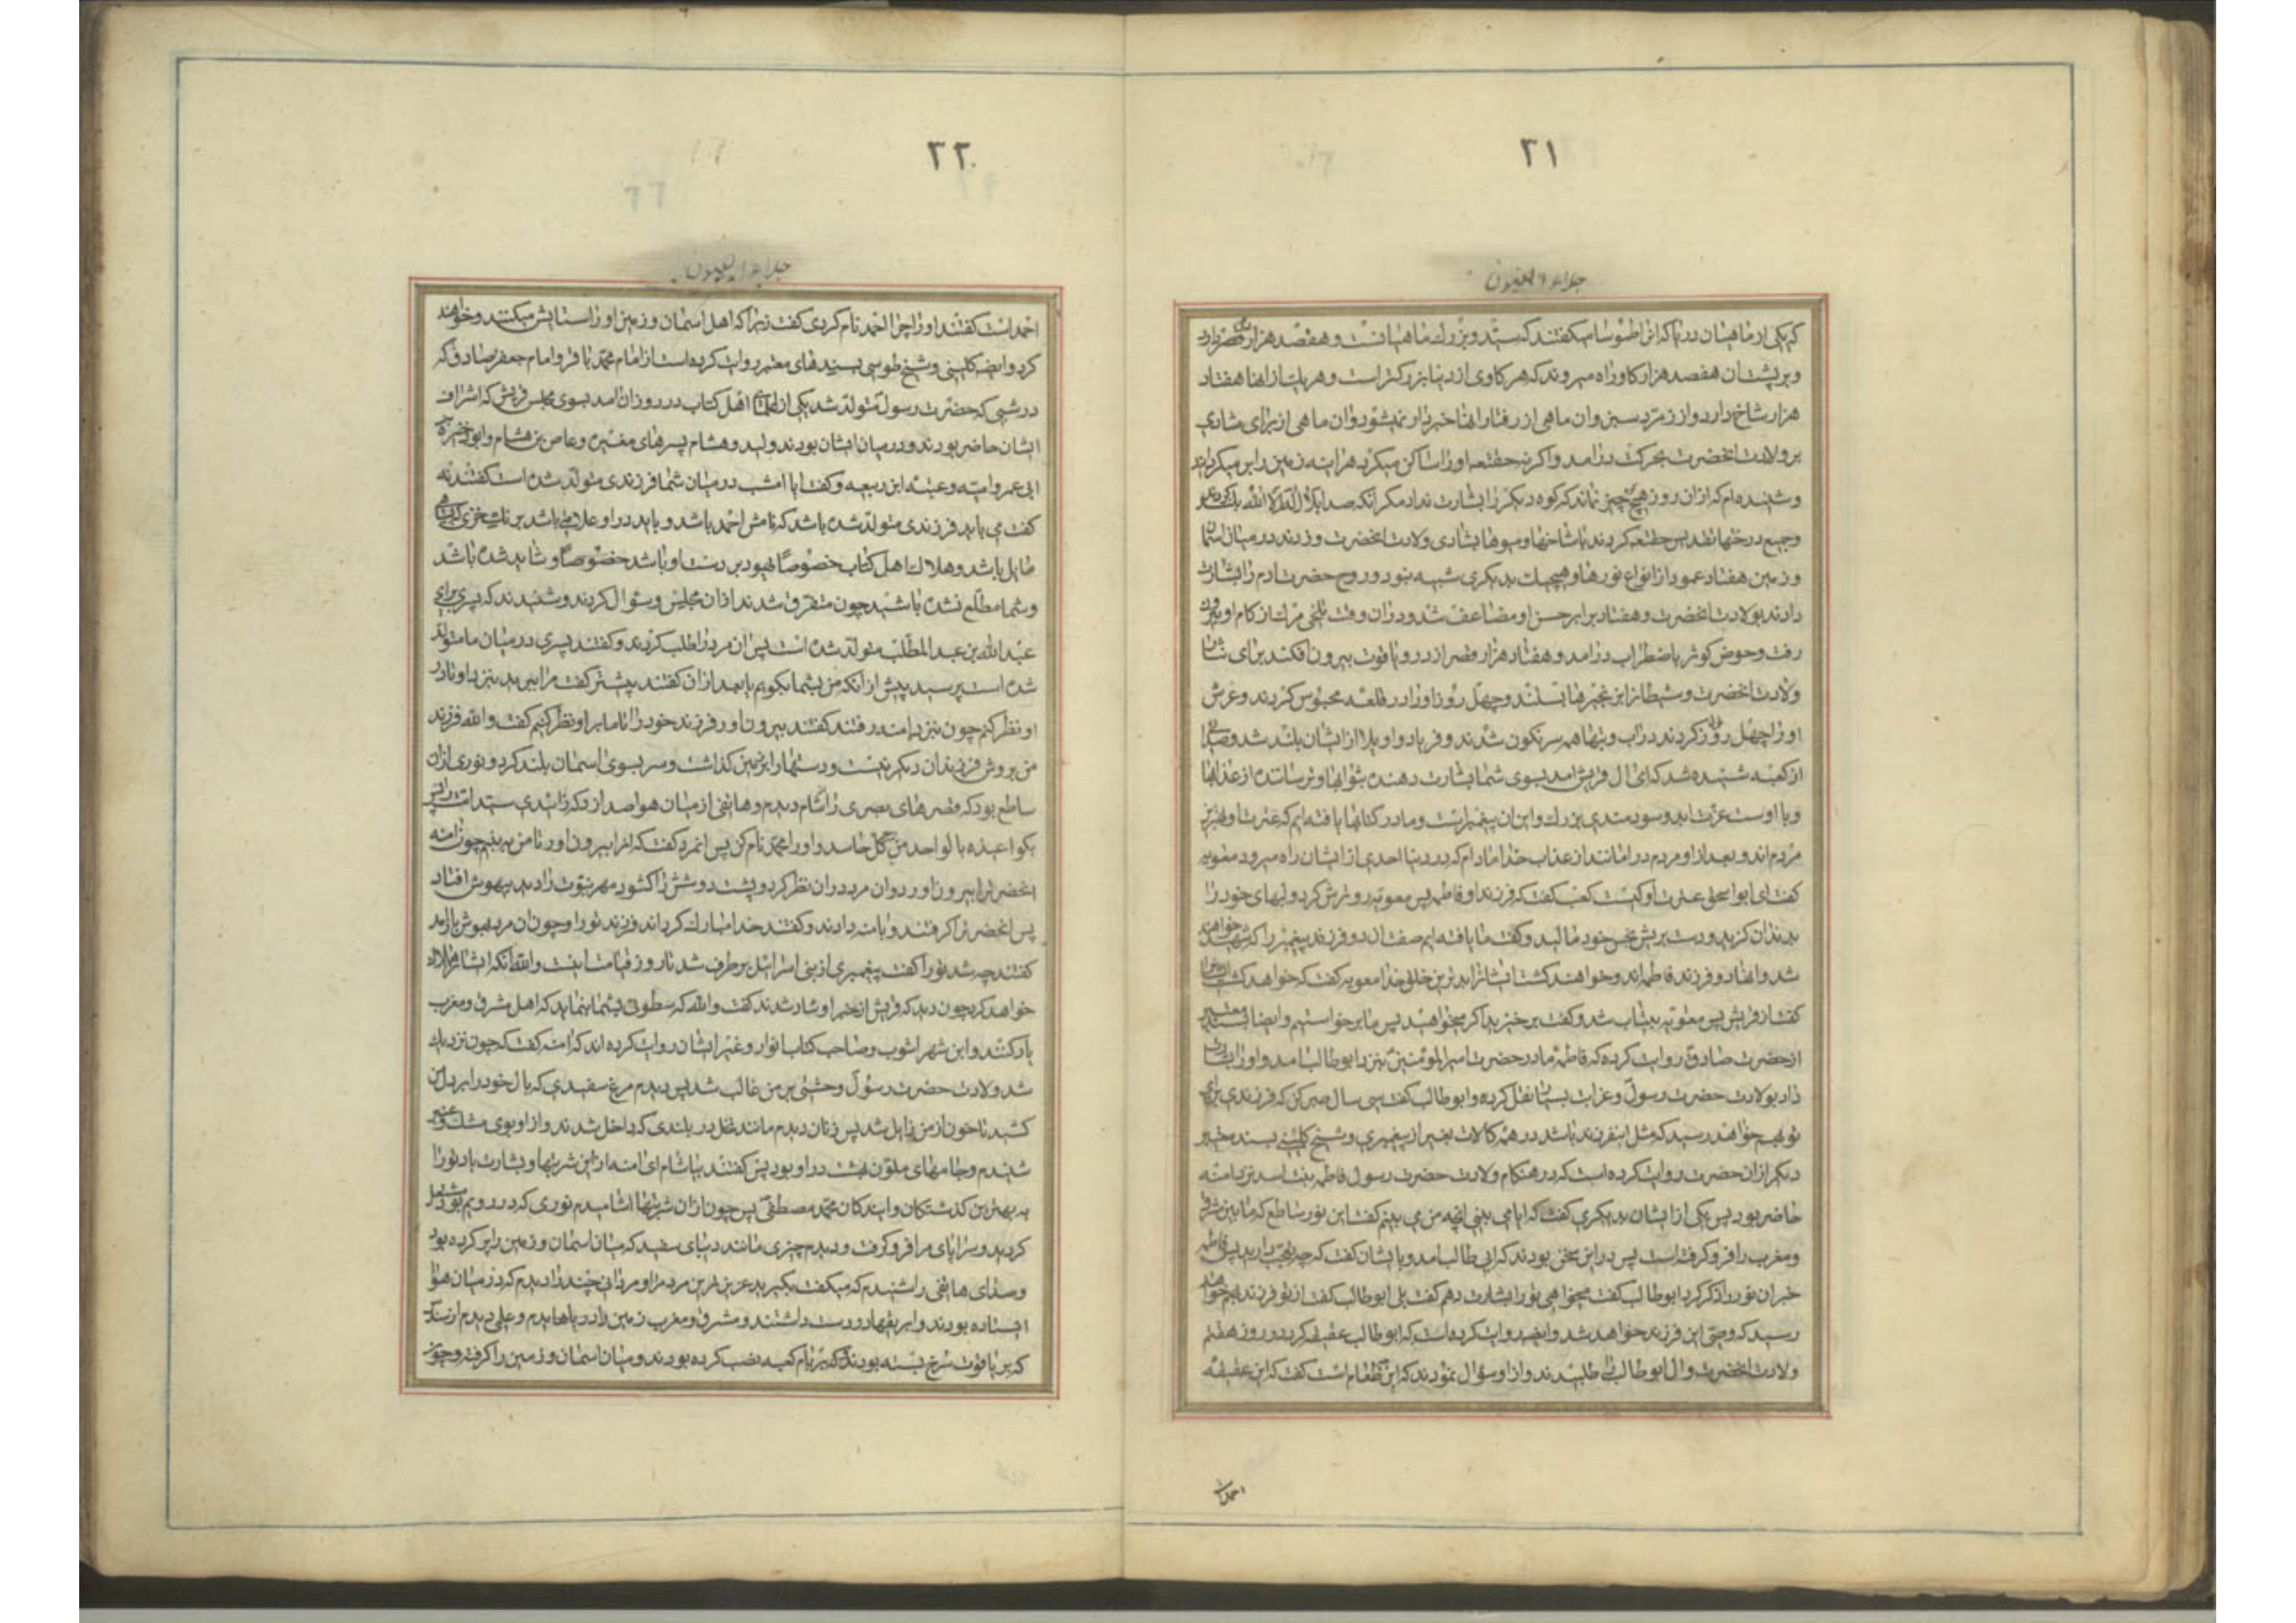 ۲۱
جلاء العیون
که یکی از ماهیان دریا که انرا طموسا میگفتند که سید و بزرك ماهیانست و هفتصد هزار دارد
و بر پشت ان هفصد هزار کاو راه میروند که هر کاوی از دنیا بزرکتر است و هر یك از انها هفتاد
هزار شاخ دارد از زمرد سبز و ان ماهی از رفتار انها خبردار نمیشود و ان ماهی از برای بشارت
بر ولادت انحضرت بحرکت درامد و اکر نه حقتعه او را ساکن میکرد هراینه زمین را بر میکرداند
و شنیده‌ام که از ان روز هیچ چیز نماند که کوه دیکر را بشارت نداد مکر انکه صدا بلا اله الا الله بلند
و جمیع درختها تقدیس حقتعه کردند با شاخها و میوها بشادی ولادت انحضرت و زدند در میان اسما
و زمین هفتاد عمود از انواع نورها و هیچیك بدیکری شبیه نبود و روح حضرت ادم را بشارت
دادند بولادت انحضرت و هفتاد برابر حسن او مضاعف شد و در ان وقت تلخی مرك از کام او بیرون
رفت و حوض کوثر باضطراب درامد و هفتاد هزار قصر از در و یاقوت بیرون افکند برای نثار
ولادت انحضرت و شیطانرا بزنجیرها بستند و چهل روز او را در قلعه محبوس کردند و عرش
او را چهل روز کردند در اب و بتها همه سرنکون شدند و فریاد و اویلا از ایشان بلند شد و صدای
از کعبه شنیده شد که ای ال قریش امد بسوی شما بشارت دهنده بثوابها و ترساننده از عذابها
و با اوست عزت ابد و سودمندی بزرك و او خاتم پیغمبرانست و ما در کتابها یافته ایم که عترت او بهترین
مردم اند و بعد از او مردم در امانند از عذاب خدا مادام که در دنیا احدی از ایشان راه میرود معویه
کفت ای ابو اسحق عترت او کیست کعب کفت که فرزند او فاطمه پس معویه رو ترش کرد و لبهای خود را
بدندان کزید و دست بریش نحس خود مالید و کفت ما یافته ایم صفت ان دو فرزند پیغمبر را که شهید خواهند
شد و انها دو فرزند فاطمه اند و خواهند کشت ایشانرا بدترین خلق خدا معویه کفت که خواهد کشت
کفت از قریش پس معویه بیتاب شد و کفت برخیزید اکر میخواهید پس ما برخواستیم و ایضا بسند معتبر
از حضرت صادق روایت کرده که فاطمه مادر حضرت امیر المومنین بنزد ابوطالب امد و او را بشارت
داد بولادت حضرت رسول و غرایب بسیار نقل کرد و ابوطالب کفت سی سال صبر کن که فرزندی برای
تو بهم خواهد رسید که مثل اینفرزند باشد در همه کمالات بغیر از پیغمبری و شیخ کلینی بسند معتبر
دیکر از ان حضرت روایت کرده است که در هنکام ولادت حضرت رسول فاطمه بنت اسد نزد امنه
حاضر بود پس یکی از ایشان بدیکری کفت که ایا می بینی انچه من می بینم کفت این نور ساطع که ما بین مشرق
و مغرب را فرو کرفته است پس در این سخن بودند که ابی طالب امد و بایشان کفت که چه تعجب دارید پس فاطمه
خبر ان نور را ذکر کرد ابوطالب کفت میخواهی تو را بشارت دهم کفت بلی ابوطالب کفت از تو فرزندی بهم خواهد
رسید که وصی این فرزند خواهد شد و ایضه روایت کرده است که ابوطالب عقیقه کرد در روز هفتم
ولادت انحضرت و ال ابوطالب را طلبیدند و از او سؤال نمودند که این چه طعام است کفت که این عقیقه
احمد است
۲۲
جلاء العیون
احمد است کفتند او را چرا احمد نام کردی کفت زیرا که اهل اسمان و زمین او را ستایش میکنند و خواهند
کرد و ایضه کلینی و شیخ طوسی بسندهای معتبر روایت کرده است از امام محمد باقر و امام جعفر صادق که
در شبی که حضرت رسول متولد شد یکی از علمای اهل کتاب در روز ان امد بسوی مجلس قریش که اشراف
ایشان حاضر بودند و در میان ایشان بودند ولید و هشام پسرهای مغیره و عاص بن هشام و ابو وجزه
ابی عمرو امیه و عتبه ابن ربیعه و کفت ایا امشب در میان شما فرزندی متولد شده است کفتند نه
کفت می باید فرزندی متولد شده باشد که نامش احمد باشد و باید در او علامتی باشد برنك خزی که بسیاهی
مایل باشد و هلاك اهل کتاب خصوصا یهود بر دست او باشد خصوصا و شاید شده باشد
و شما مطلع نشده باشید چون متفرق شدند از ان مجلس و سئوال کردند و شنیدند که پسری برای
عبد الله بن عبد المطلب متولد شده است پس ان مرد را طلب کردند و کفتند پسری در میان ما متولد
شده است پرسید پیش از انکه من بشما بکویم یا بعد از ان کفتند پیشتر کفت مرا ببرید بنزد او تا در
او نظر کنم چون بنزد امنه رفتند کفتند بیرون اور فرزند خود را تا ما بر او نظر کنیم کفت والله فرزند
من بروش فرزندان دیکر نیست و دستها را بر زمین کذاشت و سر بسوی اسمان بلند کرد و نوری از ان
ساطع بود که قصرهای بصری را از شام دیدم و هاتفی از میان هوا صدا زد که زائیدی سید امت را پس
بکو اعیذه بالواحد من کل حاسد و او را محمد نام کن پس انمرد کفت که انرا بیرون اور تا من به بینم چون امنه
انحضرترا بیرون اورد و ان مرد در ان نظر کرد و پشت دوشش را کشود مهر نبوت را دید بیهوش افتاد
پس انحضرترا کرفتند و بامنه دادند و کفتند خدا مبارك کرداند فرزند تو را و چون ان مرد بهوش باز امد
کفتند چه شد تو را کفت پیغمبری از بنی اسرائیل برطرف شد تا روز قیامت اینست والله انکه ایشانرا هلاك
خواهد کرد چون دید که قریش از خبر او شاد شدند کفت والله که سطوتی بشما بنماید که اهل مشرق و مغرب
یاد کنند و ابن شهر اشوب و صاحب کتاب انوار و غیر ایشان روایت کرده اند که امنه کفت که چون نزدیك
شد ولادت حضرت رسول وحشتی بر من غالب شد پس دیدم مرغ سفیدی که بال خود را بر دل من
کشید تا خوف از من زایل شد پس زنان دیدم مانند نخل در بلندی که داخل شدند و از او بوی مشك و عنبر
شنیدم و جامهای ملون بهشت در او بود پس کفتند بیاشام ای امنه از این شربتها و بشارت باد تو را
به بهترین کذشتکان و ایندکان محمد مصطفی پس چون از ان شربتها اشامیدم نوری که در رویم بود مشتعل
کردید و سراپای مرا فرو کرفت و دیدم چیزی مانند دیبای سفید که میان اسمان و زمین را پر کرده بود
و صدای هاتفی را شنیدم که میکفت بکیرید عزیزترین مردم را و مردانی چند را دیدم که در میان هوا
ایستاده بودند و ابریقها در دست داشتند و مشرق و مغرب زمین را دیدم و علمی دیدم از سندس
که بر یاقوت سرخ بسته بودند که بر بام کعبه نصب کرده بودند و میان اسمان و زمین را کرفته و چون